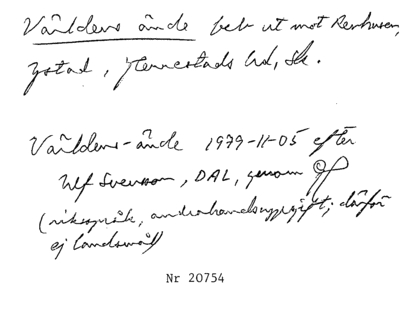 Världens ände beb ut mot Revhusen,
Ystad, Jerrestads hd, Sk.
Världens-ände 1979-11-05 efter
Ulf Svensson, DAL, genom
(riksspråk, andrahandsuppgift; därför
ej landsmål)
Nr 20754